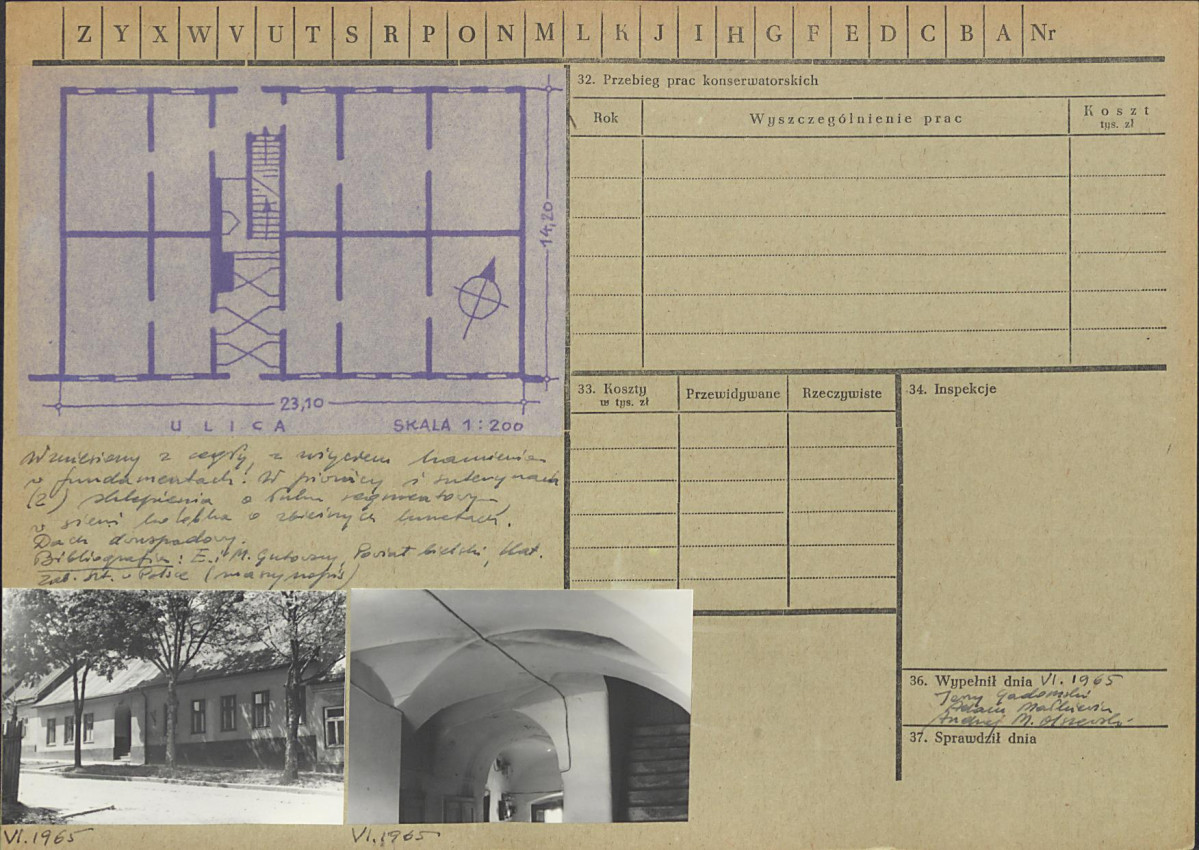 Z Y X W V U T S R P O N M L K J I H G F E D C B A Nr
14,20
23,10
ULICA SKALA 1:200
Wzniesiony z cegły, z użyciem kamienia
w fundamentach. W piwnicy i suterynach
(2) sklepienia o łuku segmentowym,
w sieni kolebka o zbieżnych lunetach.
Dach dwuspadowy.
Bibliografia: E. i M. Gutowscy, Powiat bielski, Kat.
Zab. Szt. w Polsce (maszynopis)
VI.1965
VI.1965
32. Przebieg prac konserwatorskich
Rok Wyszczególnienie prac Koszt
tys. zł
33. Koszty Przewidywane Rzeczywiste
w tys. zł
34. Inspekcje
36. Wypełnił dnia VI.1965
Jerzy Gadomski
Adam Małkiewicz
Andrzej M. Olszewski
37. Sprawdził dnia